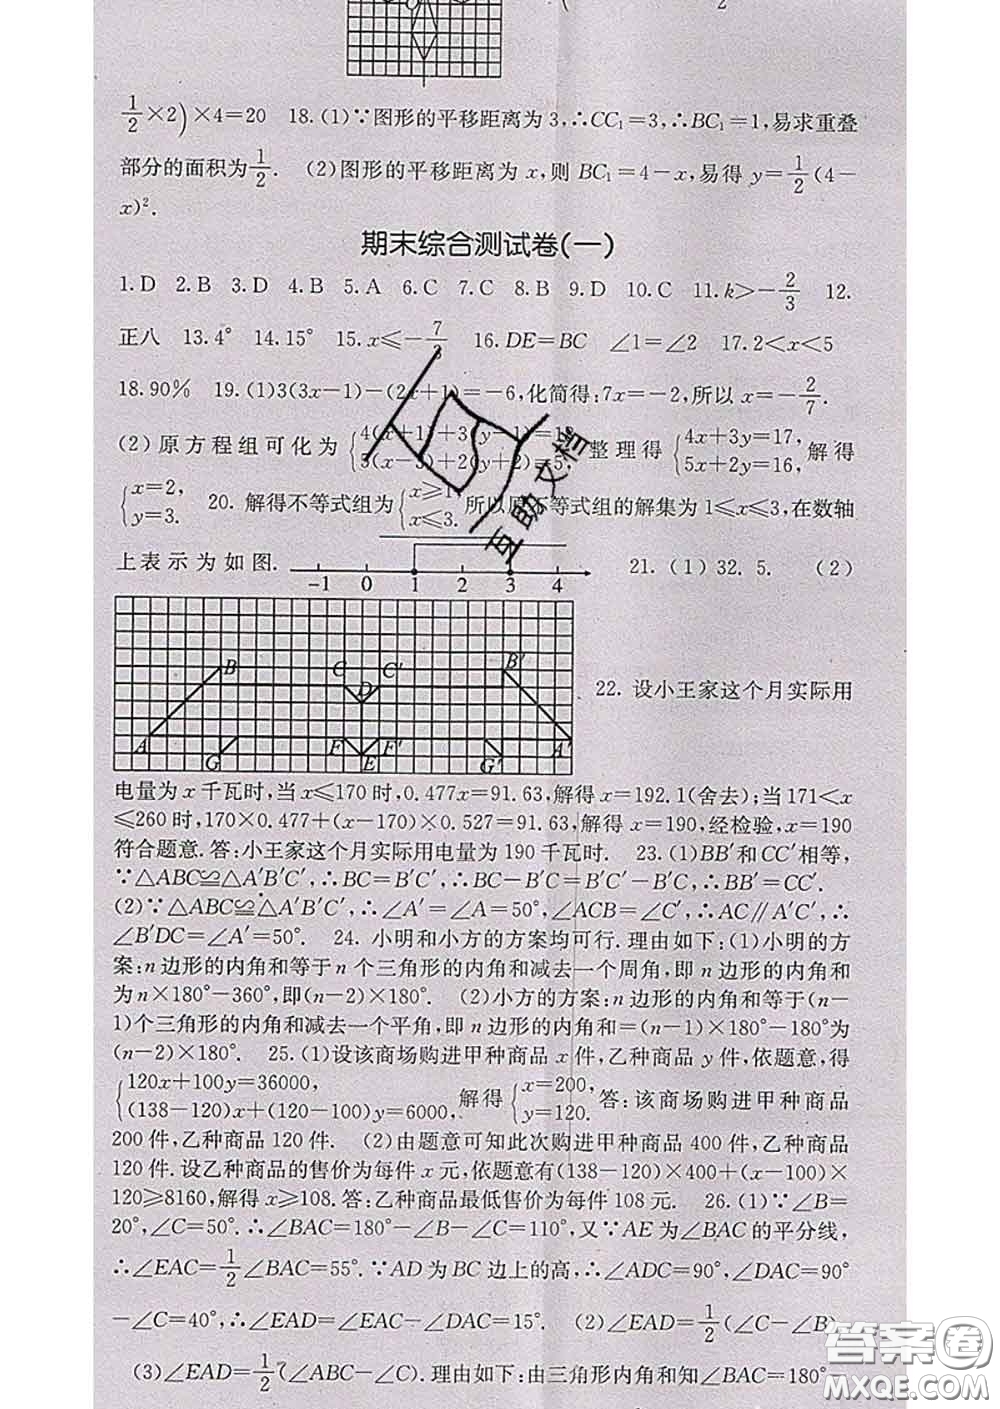 1/2×2)×4=20 18.(1)∵图形的平移距离为3,∴CC₁=3,∴BC₁=1,易求重叠
部分的面积为1/2. (2)图形的平移距离为x,则BC₁=4-x,易得y=1/2(4-
x)².
期末综合测试卷(一)
1.D 2.B 3.D 4.B 5.A 6.C 7.C 8.B 9.D 10.C 11.k>-2/3 12.
正八 13.4° 14.15° 15.x≤-7/3 16.DE=BC ∠1=∠2 17.2<x<5
18.90% 19.(1)3(3x-1)-(2x+1)=-6,化简得:7x=-2,所以x=-2/7.
(2)原方程组可化为 整理得{4x+3y=17, 5x+2y=16, 解得
{x=2, y=3. 20.解得不等式组为{x≥1, x≤3. 所以原不等式组的解集为1≤x≤3,在数轴
上表示为如图. -1 0 1 2 3 4 21.(1)32.5. (2)
B C C' B' D
A G F F' E G' A'
22.设小王家这个月实际用
电量为x千瓦时,当x≤170时,0.477x=91.63,解得x=192.1(舍去);当171<x
≤260时,170×0.477+(x-170)×0.527=91.63,解得x=190,经检验,x=190
符合题意.答:小王家这个月实际用电量为190千瓦时. 23.(1)BB′和CC′相等,
∵△ABC≌△A′B′C′,∴BC=B′C′,∴BC-B′C=B′C′-B′C,∴BB′=CC′.
(2)∵△ABC≌△A′B′C′,∴∠A′=∠A=50°,∠ACB=∠C′,∴AC∥A′C′,∴
∠B′DC=∠A′=50°. 24.小明和小方的方案均可行.理由如下:(1)小明的方
案:n边形的内角和等于n个三角形的内角和减去一个周角,即n边形的内角和
为n×180°-360°,即(n-2)×180°. (2)小方的方案:n边形的内角和等于(n-
1)个三角形的内角和减去一个平角,即n边形的内角和=(n-1)×180°-180°为
(n-2)×180°. 25.(1)设该商场购进甲种商品x件,乙种商品y件,依题意,得
{120x+100y=36000, (138-120)x+(120-100)y=6000, 解得{x=200, y=120. 答:该商场购进甲种商品
200件,乙种商品120件. (2)由题意可知此次购进甲种商品400件,乙种商品
120件.设乙种商品的售价为每件x元,依题意有(138-120)×400+(x-100)×
120≥8160,解得x≥108.答:乙种商品最低售价为每件108元. 26.(1)∵∠B=
20°,∠C=50°.∴∠BAC=180°-∠B-∠C=110°,又∵AE为∠BAC的平分线,
∴∠EAC=1/2∠BAC=55°.∵AD为BC边上的高,∴∠ADC=90°,∠DAC=90°
-∠C=40°,∴∠EAD=∠EAC-∠DAC=15°. (2)∠EAD=1/2(∠C-∠B).
(3)∠EAD=1/2(∠ABC-∠C).理由如下:由三角形内角和知∠BAC=180°-
互助文档
答案圈
MXQE.COM